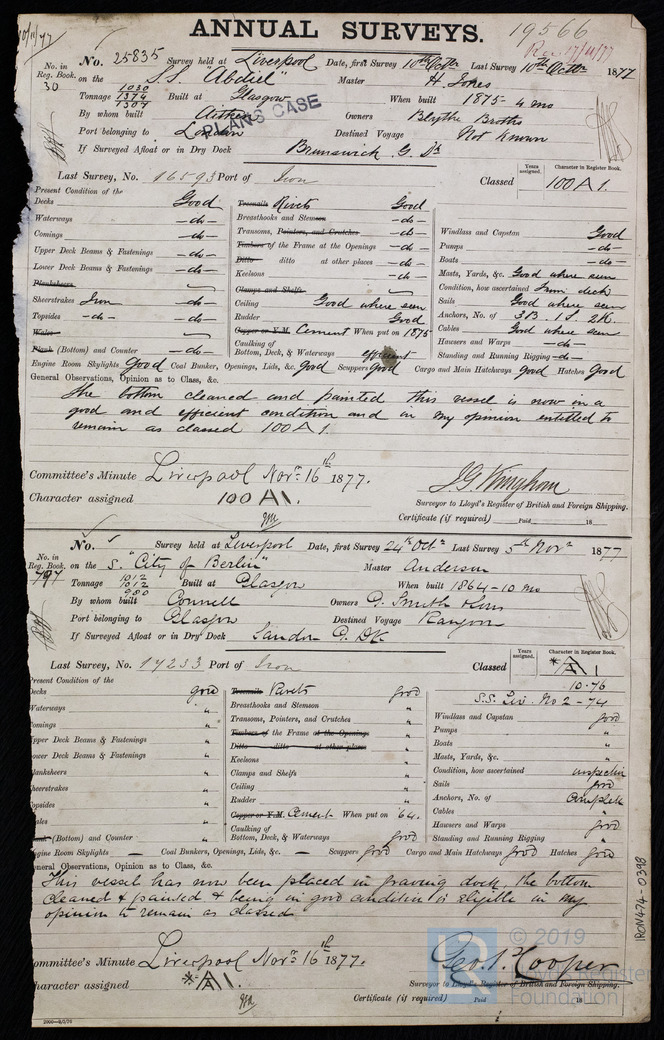 10/11/77
ANNUAL SURVEYS.
19566
Rec 17/11/77
No. in Reg. Book.
30
No. 25835 Survey held at Liverpool Date, first Survey 10th Octr Last Survey 10th Octr 1877
on the S.S. "Abdiel" Master H. Jones
Tonnage 1030 1374 1307 Built at Glasgow When built 1875-4 mo
By whom built Aitken Owners Blythe Broths
PLANS CASE
Port belonging to London Destined Voyage Not Known
If Surveyed Afloat or in Dry Dock Brunswick G. Dk
Last Survey, No. 16593 Port of Iron Classed
Years assigned.
Character in Register Book.
100A1.
Present Condition of the
Decks Good
Waterways -do-
Comings -do-
Upper Deck Beams & Fastenings -do-
Lower Deck Beams & Fastenings -do-
Planksheers
Sheerstrakes Iron -do-
Topsides -do- -do-
Wales
Plank (Bottom) and Counter -do-
Treenails Rivets Good
Breasthooks and Stemson -do-
Transoms, Pointers, and Crutches -do-
Timbers of the Frame at the Openings -do-
Ditto ditto at other places -do-
Keelsons -do-
Clamps and Shelfs
Ceiling Good where seen
Rudder Good
Copper or Y.M. Cement When put on 1875
Caulking of Bottom, Deck, & Waterways efficient
Windlass and Capstan Good
Pumps -do-
Boats -do-
Masts, Yards, &c. Good where seen
Condition, how ascertained from deck
Sails Good where seen
Anchors, No. of 3B. 1S. 2K.
Cables Good where seen
Hawsers and Warps -do-
Standing and Running Rigging -do-
Engine Room Skylights Good Coal Bunker, Openings, Lids, &c. Good Scuppers Good Cargo and Main Hatchways good Hatches Good
General Observations, Opinion as to Class, &c.
The bottom cleaned and painted this vessel is now in a
good and efficient condition and in my opinion entitled to
remain as classed 100A1.
Committee's Minute Liverpool Novr. 16th 1877.
Character assigned 100A1.
J G Kingham
Surveyor to Lloyd's Register of British and Foreign Shipping.
Certificate (if required) Paid 18
No. in Reg. Book.
797
No. Survey held at Liverpool Date, first Survey 24th Octr Last Survey 5th Novr 1877
on the S. "City of Berlin" Master Anderson
Tonnage 1012 1012 980 Built at Glasgow When built 1864-10 mo
By whom built Connell Owners G. Smith & Sons
Port belonging to Glasgow Destined Voyage Rangoon
If Surveyed Afloat or in Dry Dock Sandon G. Dk.
Last Survey, No. 17233 Port of Iron Classed
Years assigned.
Character in Register Book.
*A1
10-76
S.S. Liv. No 2-74
Present Condition of the
Decks good
Waterways "
Comings "
Upper Deck Beams & Fastenings "
Lower Deck Beams & Fastenings "
Planksheers "
Sheerstrakes "
Topsides "
Wales "
Plank (Bottom) and Counter "
Treenails Rivets good
Breasthooks and Stemson "
Transoms, Pointers, and Crutches "
Timbers of the Frame at the Openings "
Ditto ditto at other places
Keelsons "
Clamps and Shelfs "
Ceiling "
Rudder "
Copper or Y.M. Cement When put on '64.
Caulking of Bottom, Deck, & Waterways good
Windlass and Capstan good
Pumps "
Boats "
Masts, Yards, &c. "
Condition, how ascertained inspection
Sails good
Anchors, No. of Complete
Cables "
Hawsers and Warps good
Standing and Running Rigging "
Engine Room Skylights — Coal Bunkers, Openings, Lids, &c. — Scuppers good Cargo and Main Hatchways good Hatches good
General Observations, Opinion as to Class, &c.
This vessel has now been placed in graving dock, the bottom
cleaned & painted & being in good condition is eligible in my
opinion to remain as classed
Committee's Minute Liverpool Novr. 16th 1877.
Character assigned *A1.
Geo. S. Cooper
Surveyor to Lloyd's Register of British and Foreign Shipping.
Certificate (if required) Paid 18
2000—8/5/76
IRON474-0398
© 2019
Lloyd's Register
Foundation